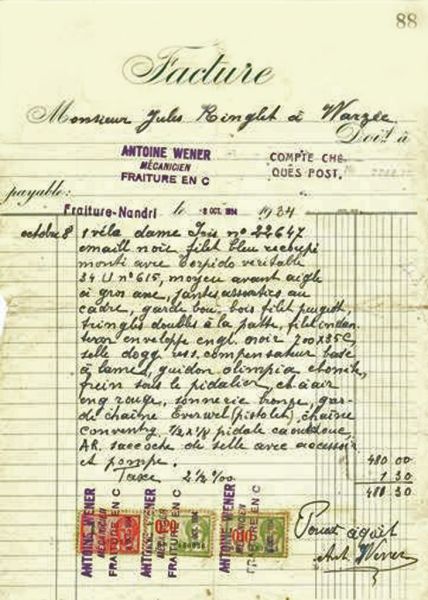 88
Facture
Monsieur Jules Ringlet à Warzée
Doit à
ANTOINE WENER
MÉCANICIEN
FRAITURE EN C
COMPTE CHÈ-
QUES POST. No
payable:
Fraiture-Nandri le - 8 OCT. 1934 1934
octobre 8 1 vélo dame Iris n° 22647
émaill noir filet bleu
monté avec torpedo véritable
34 U n° 615, moyeu avant aigle
à gros axe, jantes assorties au
cadre, garde boue bois filet peugeot,
tringles doubles à la patte, filet
enveloppe engl. noir 700x35C,
selle dogg ress. compensateur base
à lames, guidon olimpia ebonite,
frein sous le pidalier, ch à air
eng rouge, sonnerie bronze, gar-
de chaîne Everwel (pistolet), chaîne
conventry 1/2 x 1/8 pidale caoutchouc,
AR. saccoche de selle avec accessoir
et pompe. 480 00
Taxe 2 1/2 °/oo 1 30
481 30
ANTOINE WENER
MÉCANICIEN
FRAITURE EN C
ANTOINE WENER
MÉCANICIEN
FRAITURE EN C
ANTOINE WENER
MÉCANICIEN
FRAITURE EN C
Pour acquit
Ant. Wener